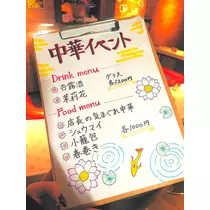 中華イベント
Drink menu
杏露酒
茉莉花
グラス
各1200円
Food menu
店長の気まぐれ中華
シュウマイ
小籠包
春巻き
各1000円